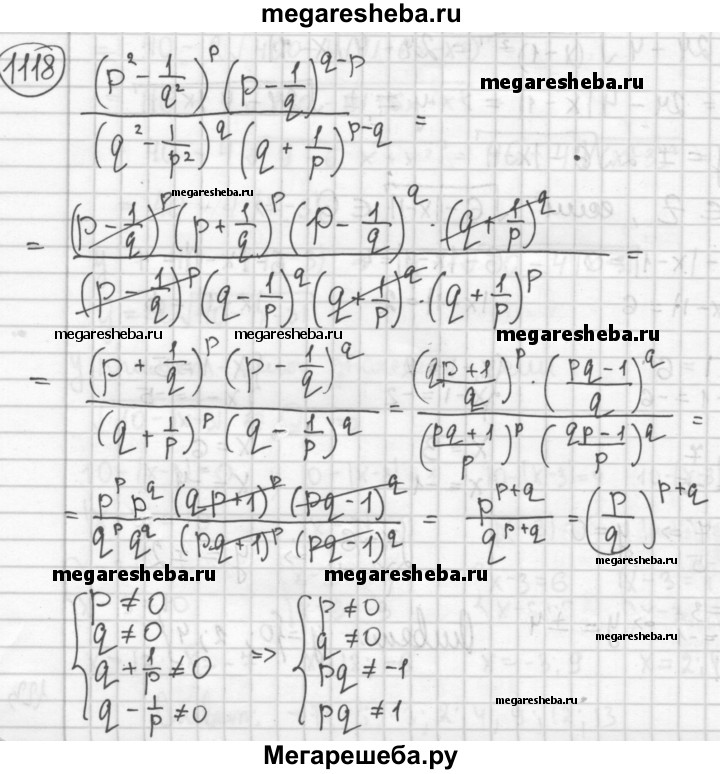 megaresheba.ru
1118
(p² - 1/q²)^p (p - 1/q)^(q-p) / (q² - 1/p²)^q (q + 1/p)^(p-q) =
megaresheba.ru
megaresheba.ru
= (p - 1/q)^p (p + 1/q)^p (p - 1/q)^q · (q + 1/p)^q / (p - 1/q)^p (q - 1/p)^q (q + 1/p)^q · (q + 1/p)^p =
megaresheba.ru megaresheba.ru megaresheba.ru
= (p + 1/q)^p (p - 1/q)^q / (q + 1/p)^p (q - 1/p)^q = ((qp+1)/q)^p · ((pq-1)/q)^q / ((pq+1)/p)^p ((qp-1)/p)^q =
= p^p p^q / q^p q^q (qp+1)^p (pq-1)^q / (pq+1)^p (pq-1)^q = p^(p+q) / q^(p+q) = (p/q)^(p+q)
megaresheba.ru megaresheba.ru megaresheba.ru
{ p ≠ 0 { p ≠ 0
q ≠ 0 q ≠ 0
q + 1/p ≠ 0 => pq ≠ -1
q - 1/p ≠ 0 pq ≠ 1
megaresheba.ru
Мегарешеба.ру